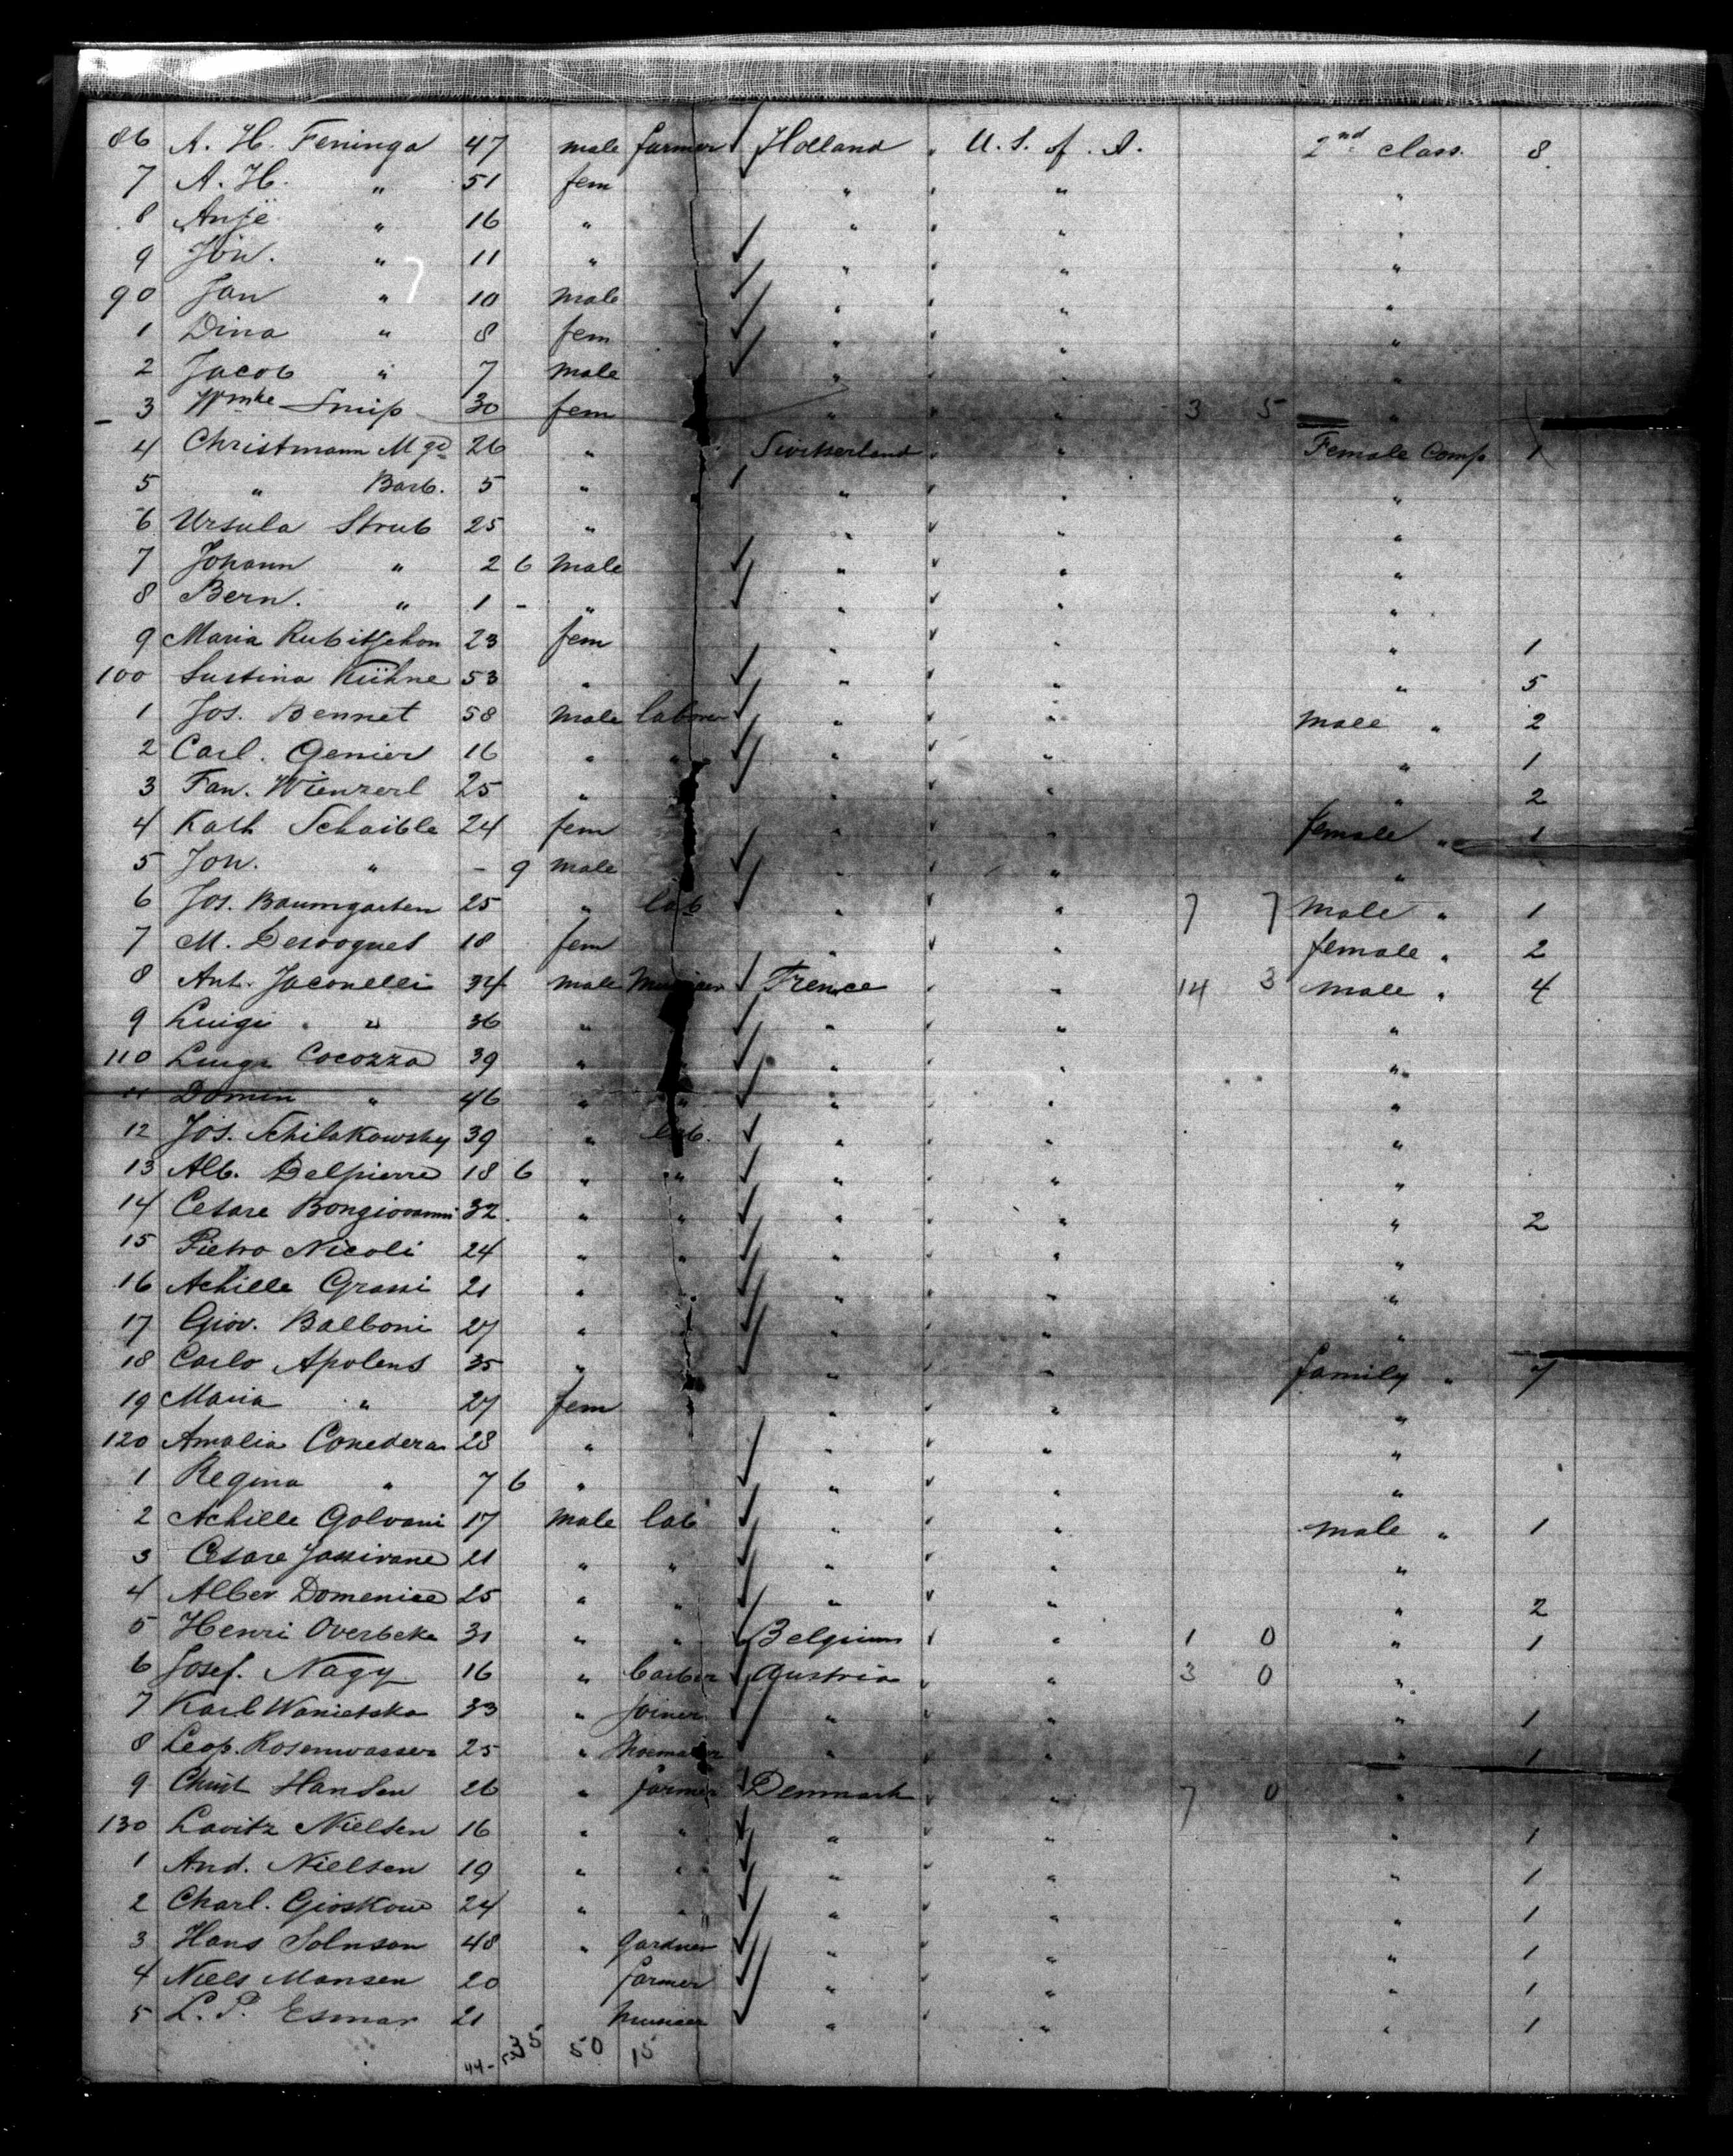 86 A. H. Feninga 47 male farmer Holland " U. S. of A. 2nd class. 8
7 A. H. " 51 fem " " " "
8 Antje " 16 " " " " "
9 Joh. " 11 " " " " "
90 Jan " 10 male " " " "
1 Dina " 8 fem " " " "
2 Jacob " 7 male " " " "
3 Wmke Smip 30 fem " " " 3 5 "
4 Christmann Mgd 26 " Switserland " " Female Comp 1
5 " Barb. 5 " " " " "
6 Ursula Strub 25 " " " "
7 Johann " 2 6 male " " "
8 Bern. " 1 - " " " "
9 Maria 23 fem " " " 1
100 Sustina Kühne 53 " " " " 5
1 Jos. Bennet 58 male laborer " " male " 2
2 Carl. Genier 16 " " " " " 1
3 Fan. Wienzerl 25 " " " " 2
4 Kath Schaible 24 fem " " female " 1
5 Joh. " - 9 male " " "
6 Jos. Baumgarten 25 " lab " " 7 7 male " 1
7 M. 18 fem " " female " 2
8 Ant. Jaconelli 34 male Musicer France " " 14 3 male " 4
9 Luigi " 36 " " " " "
110 Luigi Cocozza 39 " " " " "
11 Domin " 46 " " " " "
12 Jos. Schilakowsky 39 " lab. " " "
13 Alb. Delpierre 18 6 " " " " "
14 Cesare Bongiovanni 32 " " " " " 2
15 Pietro Nicoli 24 " " " " "
16 Achille Grassi 21 " " " "
17 Giov. Balboni 27 " " " "
18 Carlo Apolens 35 " " " family " 7
19 Maria " 27 fem " " "
120 Amalia Conedera 28 " " " "
1 Regina " 7 6 " " " "
2 Achille Golvani 17 male lab " " male " 1
3 Cesare 21 " " " " "
4 Alber Domenice 25 " " " " " 2
5 Henri Overbeke 31 " " Belgium " 1 0 " 1
6 Josef. Nagy 16 " barber Austria " 3 0 "
7 Karl Wanietska 33 " Joiner " " " 1
8 Leop. Rosenwasser 25 " Shoemaker " " " 1
9 Christ Hansen 26 " farmer Denmark " 7 0 "
130 Lavitz Nielsen 16 " " " " " 1
1 And. Nielsen 19 " " " " " 1
2 Charl. Gioskow 24 " " " " " 1
3 Hans Solnson 48 " Gardner " " " 1
4 Niels Mansen 20 farmer " " " 1
5 L. P. Esmar 21 Musicer " " " 1
44- 35 50 15